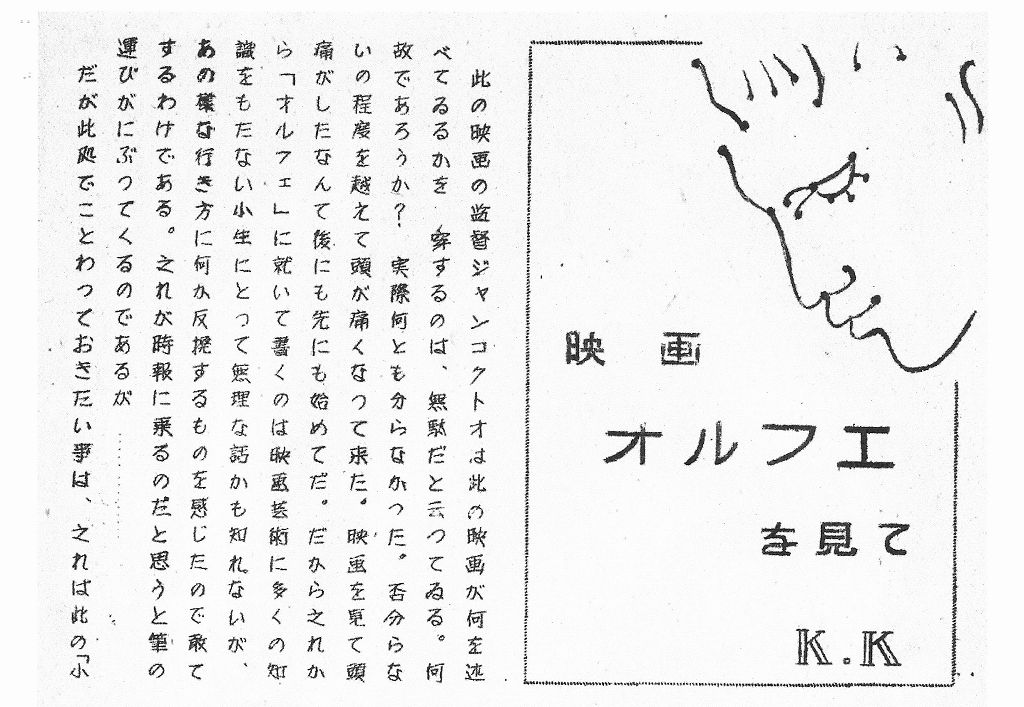 映画
オルフエ
を見て
K.K
此の映画の監督ジャンコクトオは此の映画が何を述
べてゐるかを 穿するのは、無駄だと云つてゐる。何
故であろうか? 実際何とも分らなかつた。否分らな
いの程度を越えて頭が痛くなつて来た。映画を見て頭
痛がしたなんて後にも先にも始めてだ。だから之れか
ら「オルフェ」に就いて書くのは映画芸術に多くの知
識をもたない小生にとつて無理な話かも知れないが、
あの様な行き方に何か反撓するものを感じたので敢て
するわけである。之れが時報に乗るのだと思うと筆の
運びがにぶつてくるのであるが…………
だが此処でことわつておきたい事は、之れは此の「小